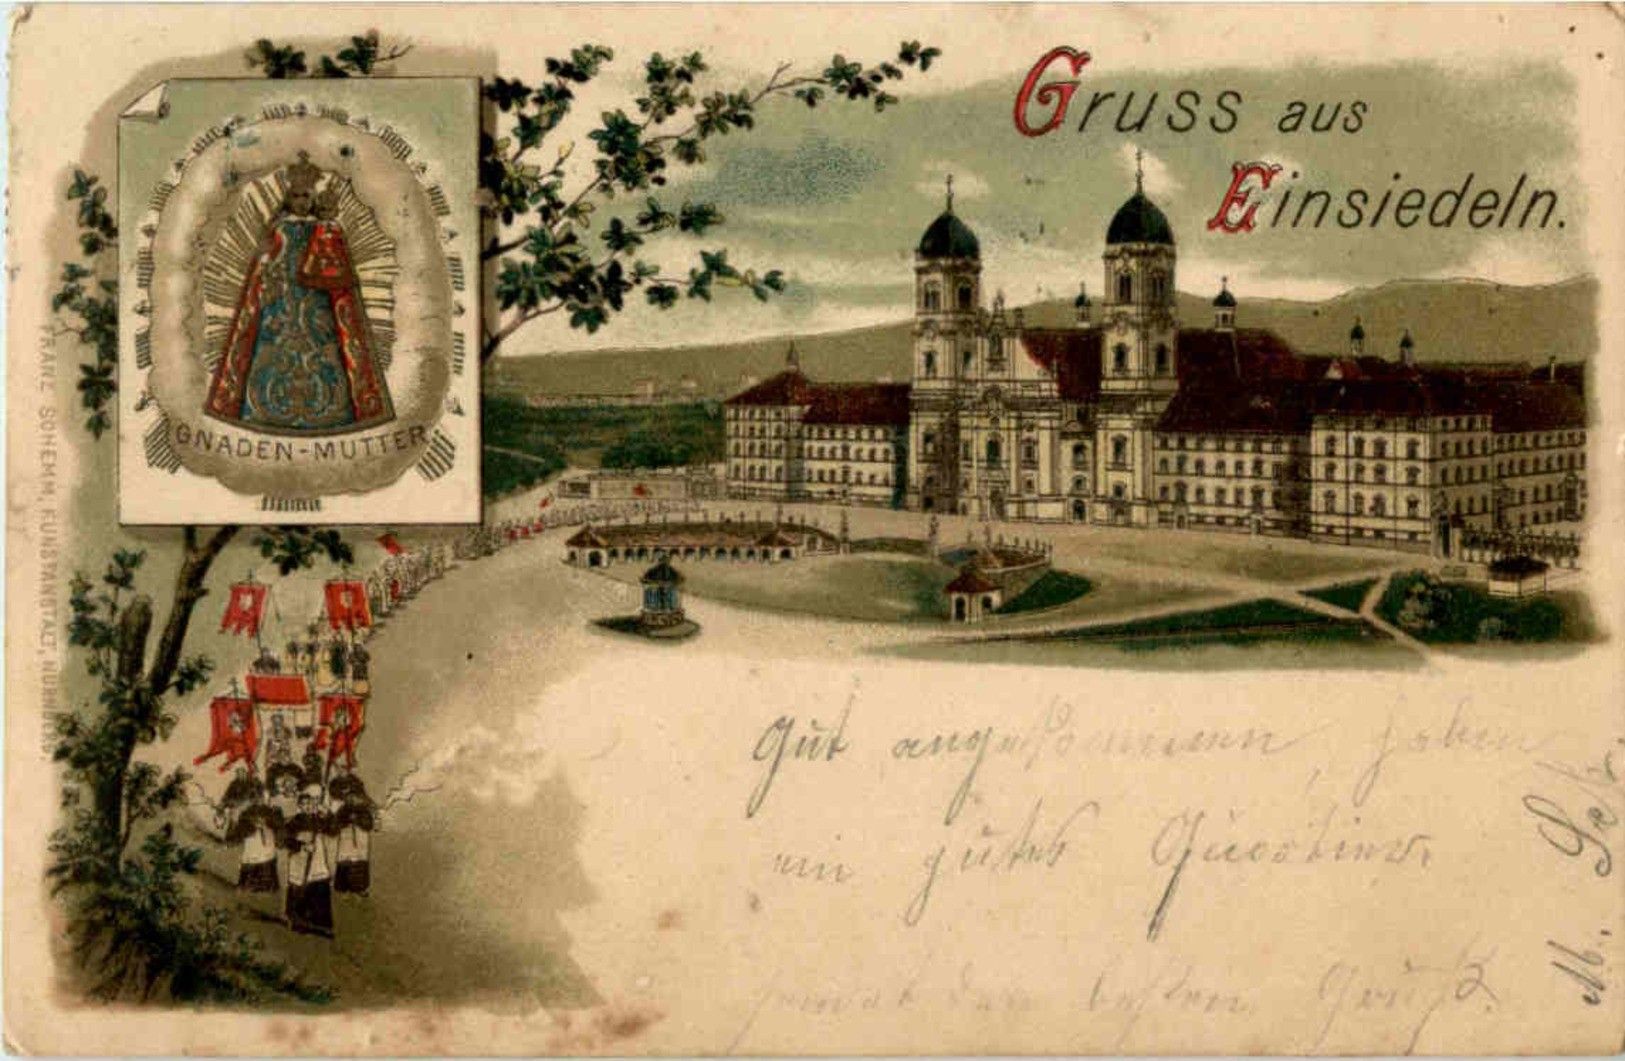 Gruss aus
Einsiedeln.
GNADEN-MUTTER
FRANZ SCHEMM, KUNSTANSTALT, NÜRNBERG.
Gut angekommen, haben
ein gutes Quartier.
den besten Gruß
M.